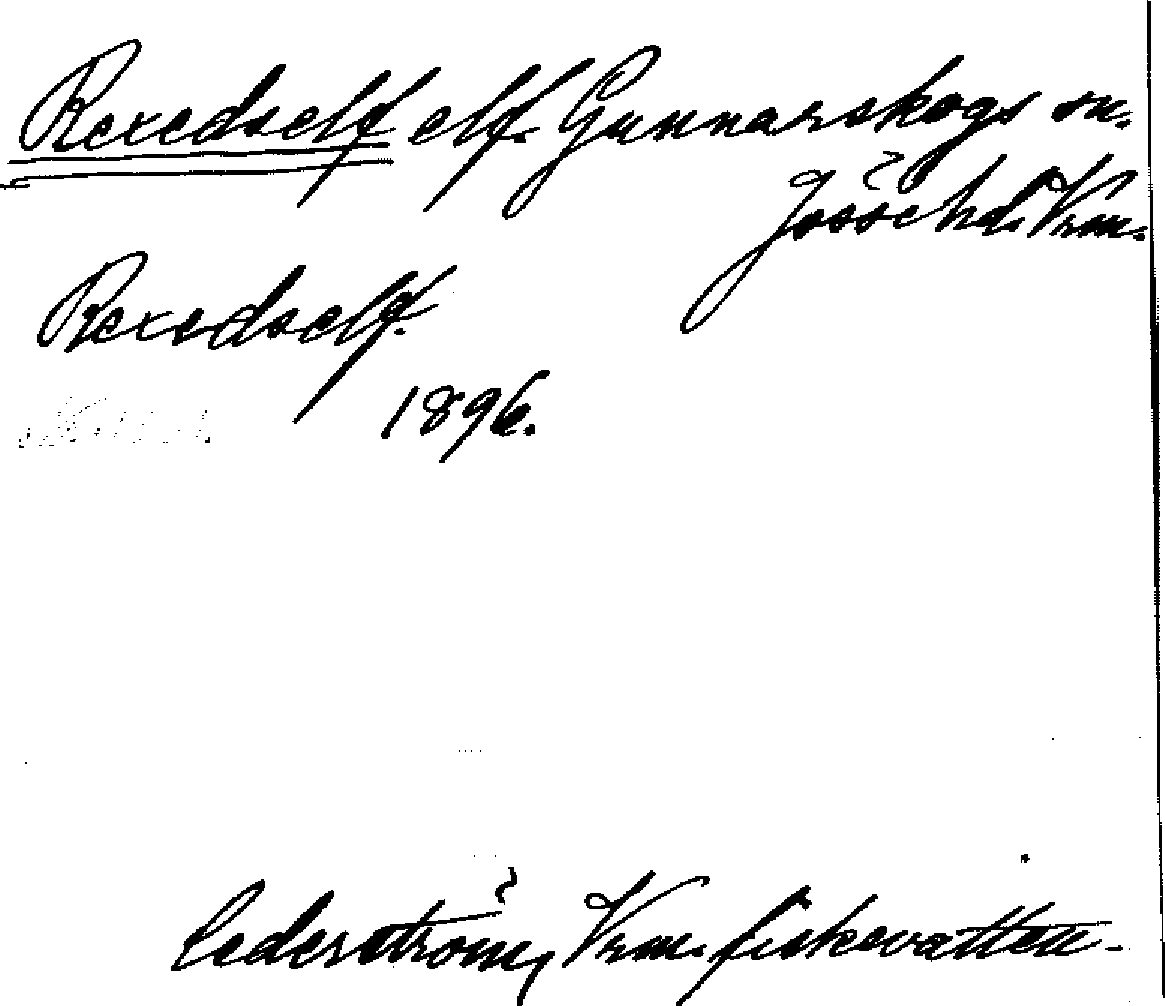 Rexedself elf. Gunnarskogs sn.
Jösse hd. Vrm.
Rexedself.
1896.
Cederström, Vrm. fiskevatten.